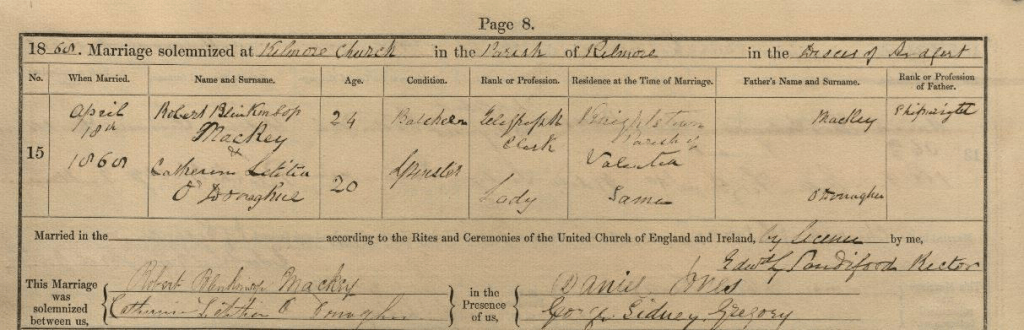 Page 8.
1868. Marriage solemnized at Kilmore Church in the Parish of Kilmore in the Dioces of Ardfert
No. When Married. Name and Surname. Age. Condition. Rank or Profession. Residence at the Time of Marriage. Father's Name and Surname. Rank or Profession of Father.
15 April 18th 1868 Robert Blinkinsop Mackey 24 Batcheler Telegraph Clerk Knightstown Parish of Valentia Mackey Shipwright
&
Catherine Letitia O'Donaghue 20 Spinster Lady Same O'Donaghue
Married in the according to the Rites and Ceremonies of the United Church of England and Ireland, by licence by me,
Sandiford Rector
This Marriage was solemnized between us, Robert Blenkinsop Mackey in the Presence of us, Daniel
Catherine Letitia O Donaghue Sidney Gregory